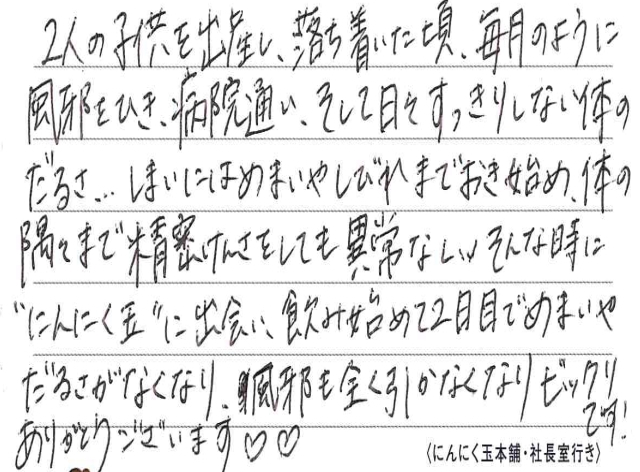 2人の子供を出産し、落ち着いた頃、毎月のように
風邪をひき、病院通い、そして日々すっきりしない体の
だるさ... しまいにはめまいやしびれまでおき始め、体の
隅々まで精密けんさをしても異常なし、そんな時に
"にんにく玉"に出会い、飲み始めて2日目でめまいや
だるさがなくなり、風邪も全く引かなくなりビックリ
です!
ありがとうございます♡♡
〈にんにく玉本舗・社長室行き〉